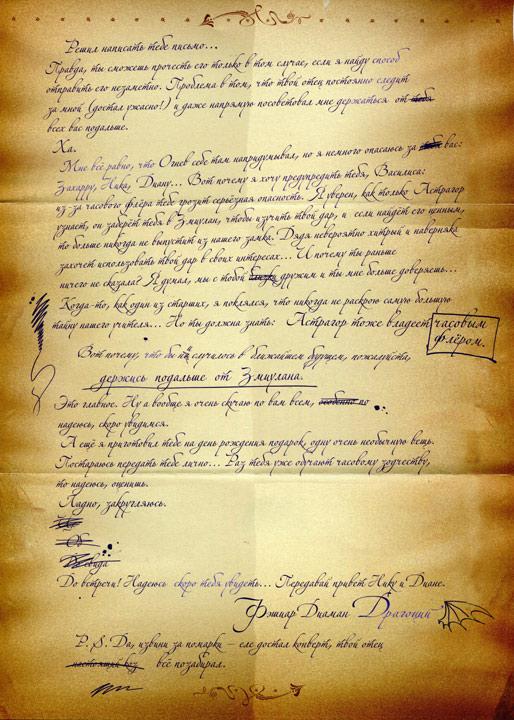 Решил написать тебе письмо...
Правда, ты сможешь прочесть его только в том случае, если я найду способ
отправить его незаметно. Проблема в том, что твой отец постоянно следит
за мной (достал ужасно!) и даже напрямую посоветовал мне держаться от тебя
всех вас подальше.
Ха.
Мне всё равно, что Огнев себе там напридумывал, но я немного опасаюсь за тебя вас:
Захарру, Ника, Диану... Вот почему я хочу предупредить тебя, Василиса:
из-за часового флёра тебе грозит серьёзная опасность. Я уверен, как только Астрагор
узнает, он заберёт тебя в Змиулан, чтобы изучить твой дар, и если найдёт его ценным,
то больше никогда не выпустит из нашего замка. Дядя невероятно хитрый и наверняка
захочет использовать твой дар в своих интересах... И почему ты раньше
ничего не сказала? Я думал, мы с тобой близко дружим и ты мне больше доверяешь...
Когда-то, как один из старших, я поклялся, что никогда не раскрою самую большую
тайну нашего учителя... Но ты должна знать: Астрагор тоже владеет часовым
флёром.
Вот почему, что бы ни случилось в ближайшем будущем, пожалуйста,
держись подальше от Змиулана.
Это главное. Ну а вообще я очень скучаю по вам всем, особенно по
надеюсь, скоро увидимся.
А ещё я приготовил тебе на день рождения подарок, одну очень необычную вещь.
Постараюсь передать тебе лично... Раз тебя уже обучают часовому зодчеству,
то надеюсь, оценишь.
Ладно, закругляюсь.
До встречи! Надеюсь скоро тебя увидеть... Передавай привет Нику и Диане.
Фэшиар Диаман Драгоций
P. S. Да, извини за помарки – еле достал конверт, твой отец
настоящий коз всё позабирал.